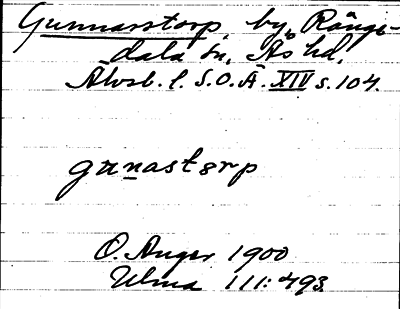 Gunnarstorp, by, Rånge-
dala sn, Ås hd,
Älvsb. l. S.O.Ä. XIV s. 104.
gunastorp
O. Anger 1900
Ulma 111:493